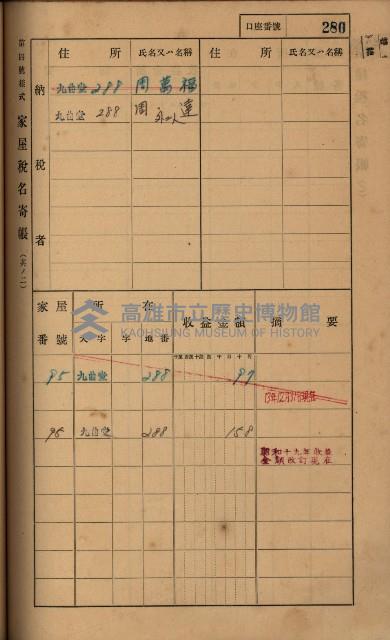 口座番號 280
第四號樣式 家屋稅名寄帳 (其ノ二)
納稅者
住所 氏名又ハ名稱 住所 氏名又ハ名稱
九曲堂 288 周萬福
九曲堂 288 周 達
外一人
高雄市立歷史博物館
KAOHSIUNG MUSEUM OF HISTORY
家屋番號 所在 收益金額 摘要
大字 字 地番
95 九曲堂 288 97
95 九曲堂 288 158
昭和十九年收益
金額改訂現在